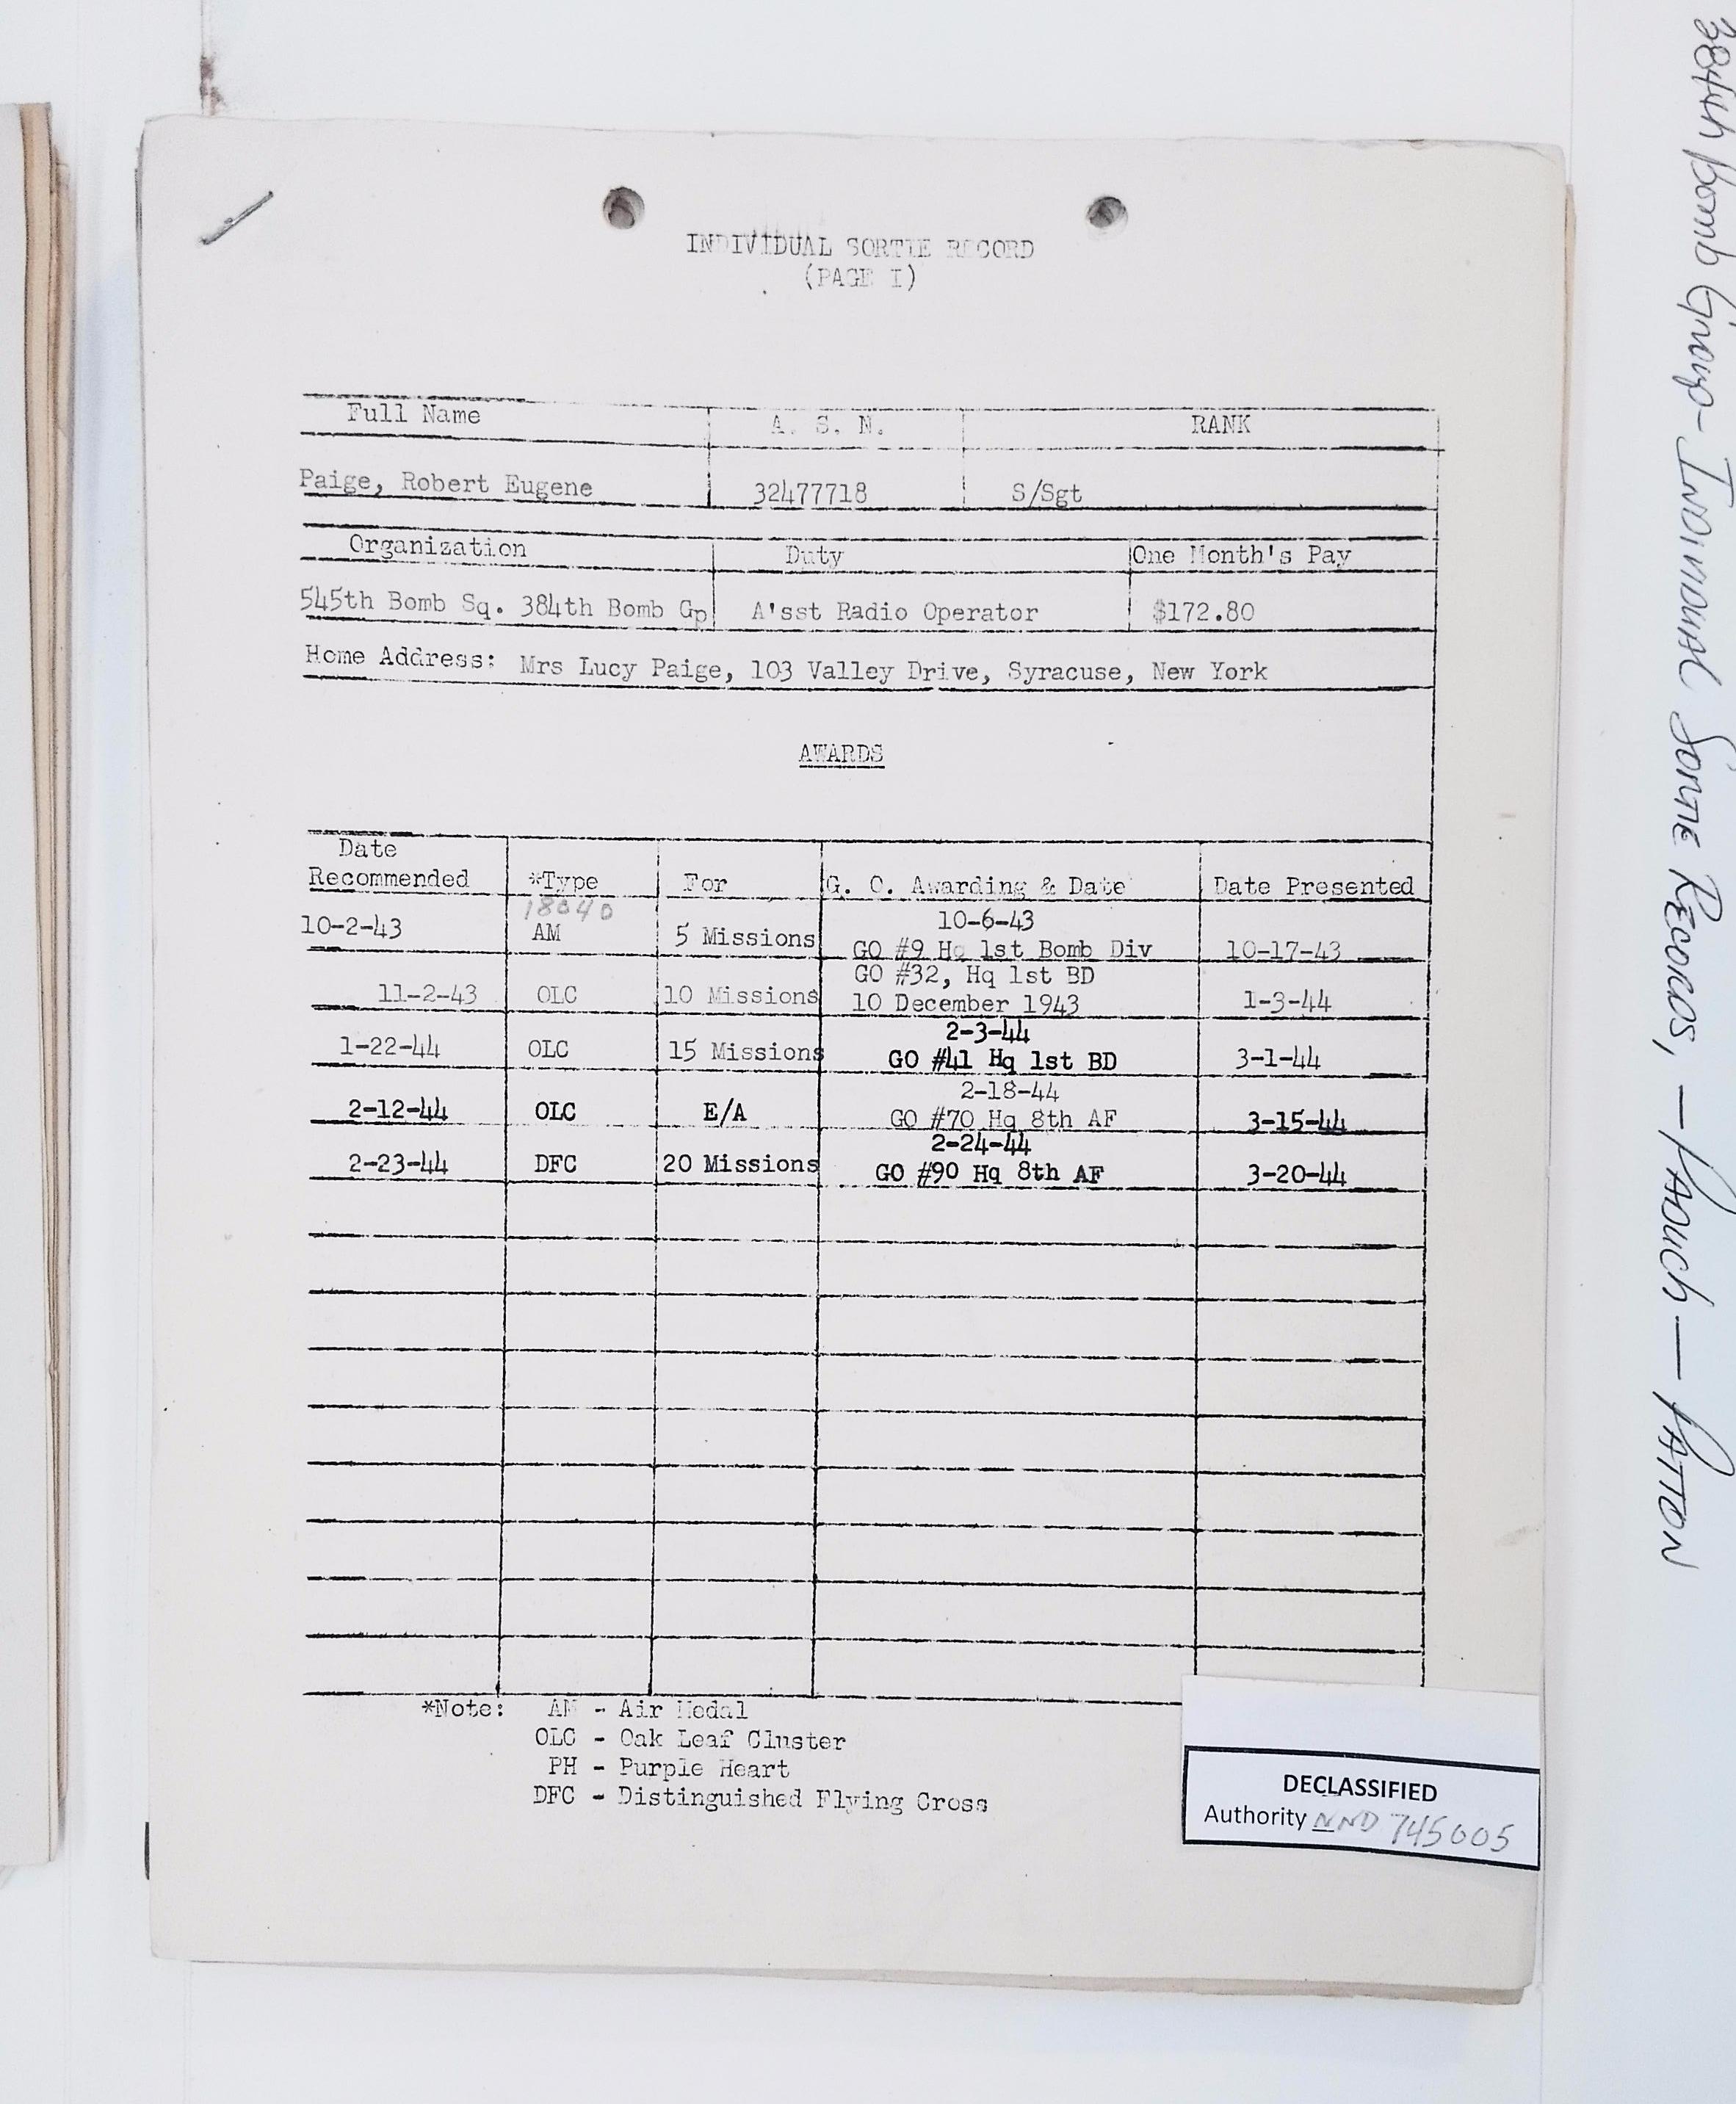 INDIVIDUAL SORTIE RECORD
(PAGE I)
Full Name A. S. N. RANK
Paige, Robert Eugene 32477718 S/Sgt
Organization Duty One Month's Pay
545th Bomb Sq. 384th Bomb Gp A'sst Radio Operator $172.80
Home Address: Mrs Lucy Paige, 103 Valley Drive, Syracuse, New York
AWARDS
Date
Recommended *Type For G. O. Awarding & Date Date Presented
18040 10-6-43
10-2-43 AM 5 Missions GO #9 Hq 1st Bomb Div 10-17-43
GO #32, Hq 1st BD
11-2-43 OLC 10 Missions 10 December 1943 1-3-44
2-3-44
1-22-44 OLC 15 Missions GO #41 Hq 1st BD 3-1-44
2-18-44
2-12-44 OLC E/A GO #70 Hq 8th AF 3-15-44
2-24-44
2-23-44 DFC 20 Missions GO #90 Hq 8th AF 3-20-44
*Note: AM - Air Medal
OLC - Oak Leaf Cluster
PH - Purple Heart
DFC - Distinguished Flying Cross
DECLASSIFIED
Authority NND 745005
384th Bomb Group - Individual Sortie Records, - Paduch - Patton